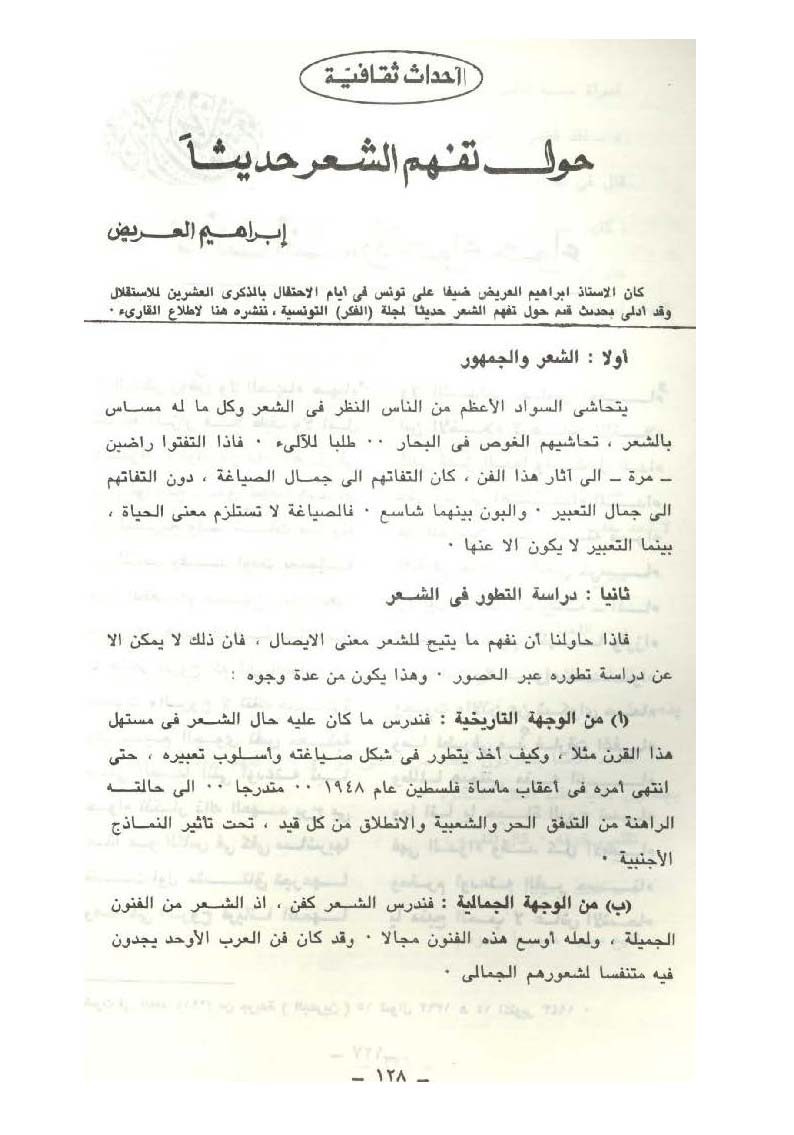 أحداث ثقافية
حول تفهم الشعر حديثاً
إبراهيم العريض
كان الاستاذ ابراهيم العريض ضيفا على تونس فى أيام الاحتفال بالذكرى العشرين للاستقلال
وقد أدلى بحديث قيم حول تفهم الشعر حديثا لمجلة (الفكر) التونسية ، ننشره هنا لاطلاع القارىء ٠
أولا : الشعر والجمهور
يتحاشى السواد الأعظم من الناس النظر فى الشعر وكل ما له مساس
بالشعر ، تحاشيهم الغوص فى البحار ٠٠ طلبا للآلىء ٠ فاذا التفتوا راضين
ـ مرة ـ الى آثار هذا الفن ، كان التفاتهم الى جمال الصياغة ، دون التفاتهم
الى جمال التعبير ٠ والبون بينهما شاسع ٠ فالصياغة لا تستلزم معنى الحياة ،
بينما التعبير لا يكون الا عنها ٠
ثانيا : دراسة التطور فى الشعر
فاذا حاولنا أن نفهم ما يتيح للشعر معنى الايصال ، فان ذلك لا يمكن الا
عن دراسة تطوره عبر العصور ٠ وهذا يكون من عدة وجوه :
(أ) من الوجهة التاريخية : فندرس ما كان عليه حال الشعر فى مستهل
هذا القرن مثلا ، وكيف أخذ يتطور فى شكل صياغته وأسلوب تعبيره ، حتى
انتهى أمره فى أعقاب مأساة فلسطين عام ١٩٤٨ ٠٠ متدرجا ٠٠ الى حالته
الراهنة من التدفق الحر والشعبية والانطلاق من كل قيد ، تحت تأثير النماذج
الأجنبية ٠
(ب) من الوجهة الجمالية : فندرس الشعر كفن ، اذ الشعر من الفنون
الجميلة ، ولعله أوسع هذه الفنون مجالا ٠ وقد كان فن العرب الأوحد يجدون
فيه متنفسا لشعورهم الجمالى ٠
ـ ١٢٨ ـ